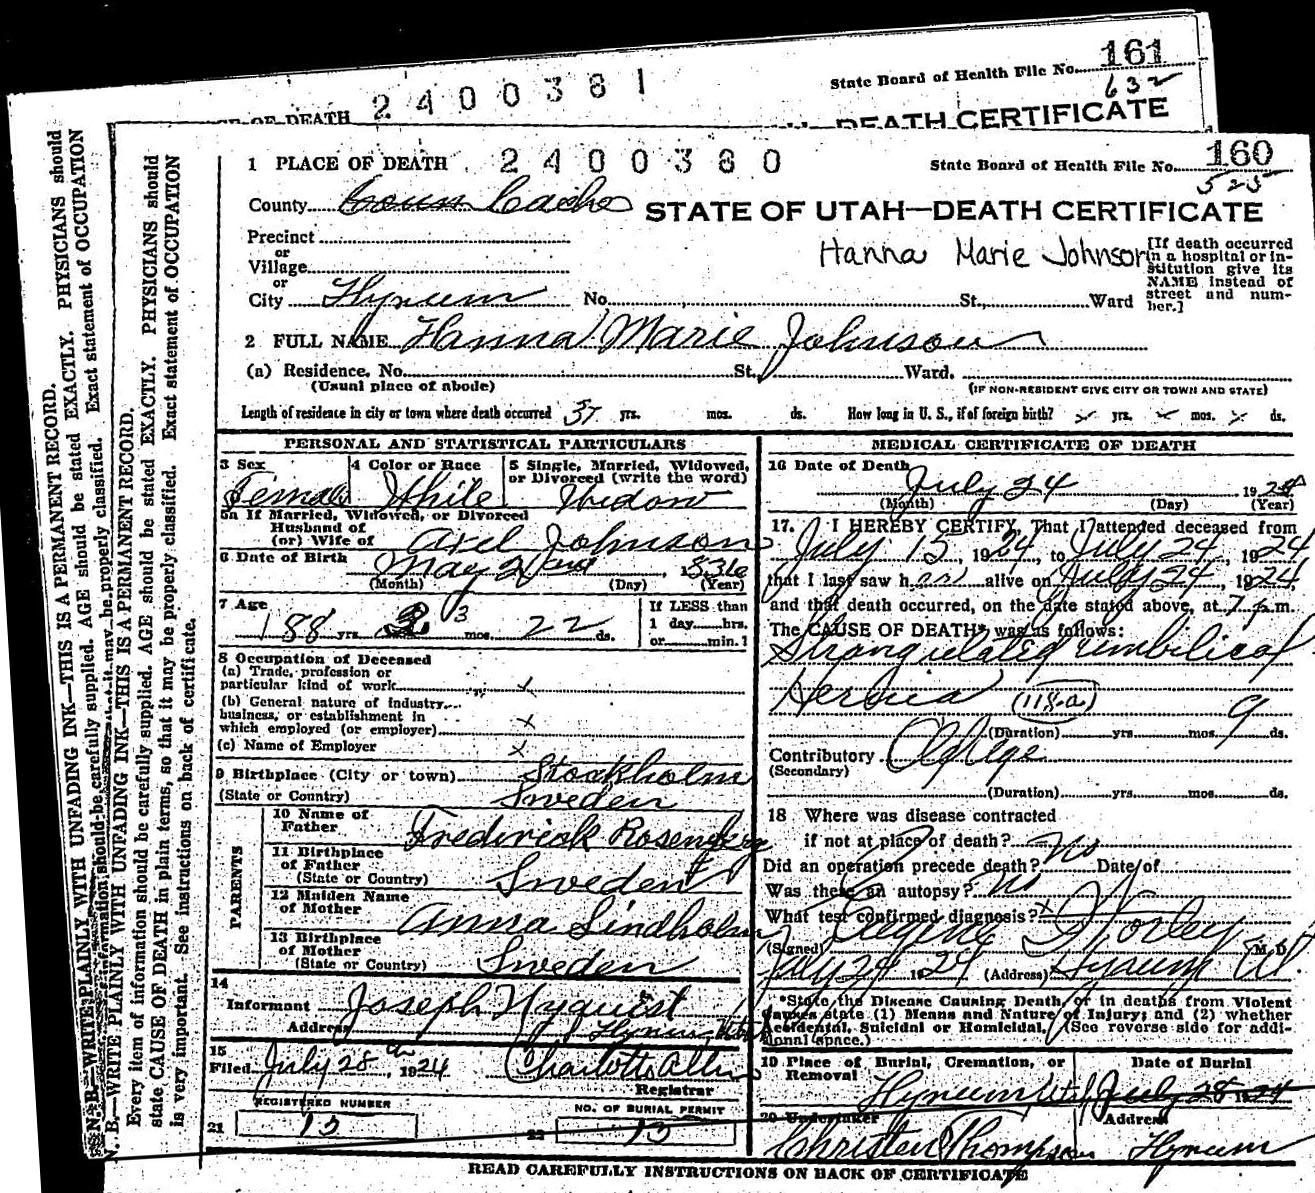 State Board of Health File No. 161
632
OF DEATH 2400381
DEATH CERTIFICATE
1 PLACE OF DEATH 2400380
State Board of Health File No. 160
525
County Cache
STATE OF UTAH—DEATH CERTIFICATE
Precinct
or
Village
or
City Hyrum No. St., Ward
Hanna Marie Johnson
[If death occurred in a hospital or institution give its NAME instead of street and number.]
2 FULL NAME Hanna Marie Johnson
(a) Residence. No. St., Ward.
(Usual place of abode)
(IF NON-RESIDENT GIVE CITY OR TOWN AND STATE)
Length of residence in city or town where death occurred 37 yrs. mos. ds. How long in U. S., if of foreign birth? x yrs. x mos. x ds.
PERSONAL AND STATISTICAL PARTICULARS
3 Sex
Female
4 Color or Race
White
5 Single, Married, Widowed, or Divorced (write the word)
Widow
5a If Married, Widowed, or Divorced
Husband of
(or) Wife of Axel Johnson
6 Date of Birth May 2nd, 1836
(Month) (Day) (Year)
7 Age
88 yrs. 3 mos. 22 ds.
If LESS than
1 day hrs.
or min.
8 Occupation of Deceased
(a) Trade, profession or
particular kind of work x
(b) General nature of industry,
business, or establishment in
which employed (or employer) x
(c) Name of Employer x
9 Birthplace (City or town) Stockholm
(State or Country) Sweden
PARENTS
10 Name of
Father Frederick
11 Birthplace
of Father
(State or Country) Sweden
12 Maiden Name
of Mother Anna Lindholm
13 Birthplace
of Mother
(State or Country) Sweden
14
Informant Joseph Nyquist
Address Hyrum, Utah
15
Filed July 28th, 1924 Charlotte Allen
Registrar
REGISTERED NUMBER
21 13
NO. OF BURIAL PERMIT
22 13
MEDICAL CERTIFICATE OF DEATH
16 Date of Death
July 24 1924
(Month) (Day) (Year)
17. I HEREBY CERTIFY, That I attended deceased from
July 15, 1924, to July 24, 1924
that I last saw her alive on July 24, 1924,
and that death occurred, on the date stated above, at 7 p.m.
The CAUSE OF DEATH* was as follows:
Strangulated umbilical
Hernia (118-a)
(Duration) yrs. mos. 9 ds.
Contributory Old Age
(Secondary)
(Duration) yrs. mos. ds.
18 Where was disease contracted
if not at place of death?
Did an operation precede death? No Date of
Was there an autopsy? No
What test confirmed diagnosis? x
(Signed) Eugene Worley M. D.
July 24 1924 (Address) Hyrum Ut.
*State the Disease Causing Death, or in deaths from Violent
Causes state (1) Means and Nature of Injury; and (2) whether
Accidental, Suicidal or Homicidal. (See reverse side for addi-
tional space.)
19 Place of Burial, Cremation, or
Removal
Hyrum Utah
Date of Burial
July 28 1924
20 Undertaker
Christen Thompson
Address
Hyrum
READ CAREFULLY INSTRUCTIONS ON BACK OF CERTIFICATE
N. B.—WRITE PLAINLY WITH UNFADING INK—THIS IS A PERMANENT RECORD.
Every item of information should be carefully supplied. AGE should be stated EXACTLY. PHYSICIANS should
state CAUSE OF DEATH in plain terms, so that it may be properly classified. Exact statement of OCCUPATION
is very important. See instructions on back of certificate.
N. B.—WRITE PLAINLY WITH UNFADING INK—THIS IS A PERMANENT RECORD.
information should be carefully supplied. AGE should be stated EXACTLY. PHYSICIANS should
may be properly classified. Exact statement of OCCUPATION